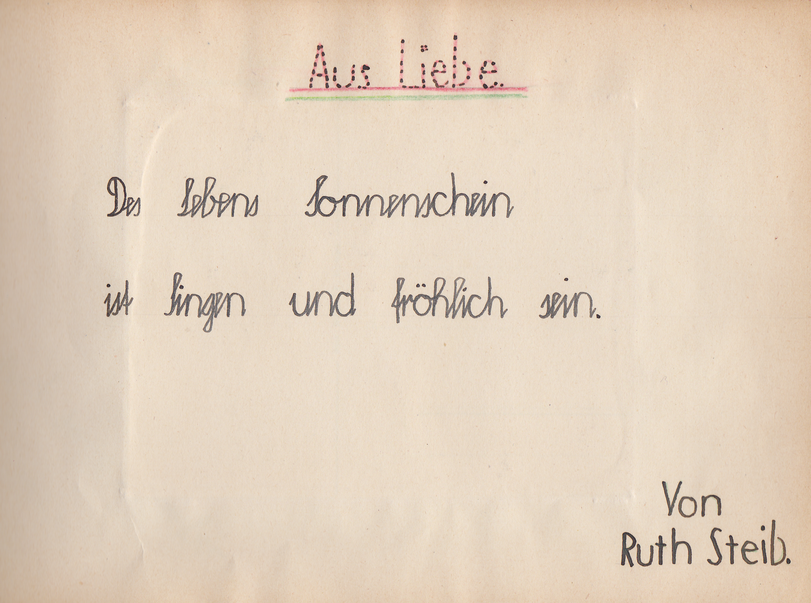 Aus Liebe.
Des Lebens Sonnenschein
ist Singen und fröhlich sein.
Von
Ruth Steib.